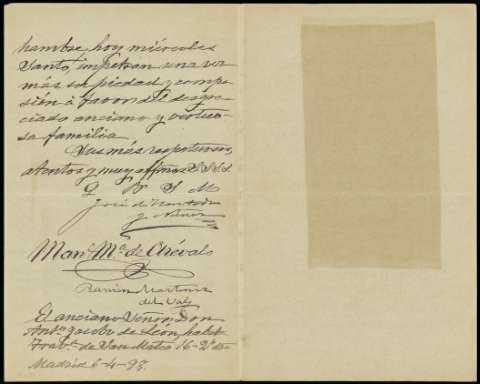 hambre, hoy miércoles
Santo, impetran una vez
más su piedad y compa-
sión á favor del desgra-
ciado anciano y virtuo-
sa familia
Sus más respetuosos,
atentos y muy affmos S.S.S.S
Q B S M
José de
y Núñez
Man.l M.a de Chévals
Ramón Martínez
del Val
El anciano Señor Don
Ant.o Jacobo de León, habt.
Trav.a de San Mateo 16-2º
Madrid 6-4-98.